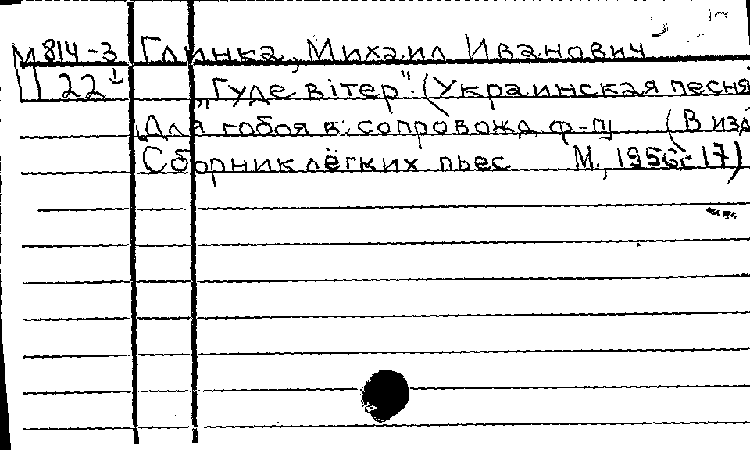 М 814-3 Глинка, Михаил Иванович
Ц 221 „Гуде вітер". (Украинская песня
Для гобоя в сопровожд ф-п (В изд
Сборник лёгких пьес М., 1956 с 17)